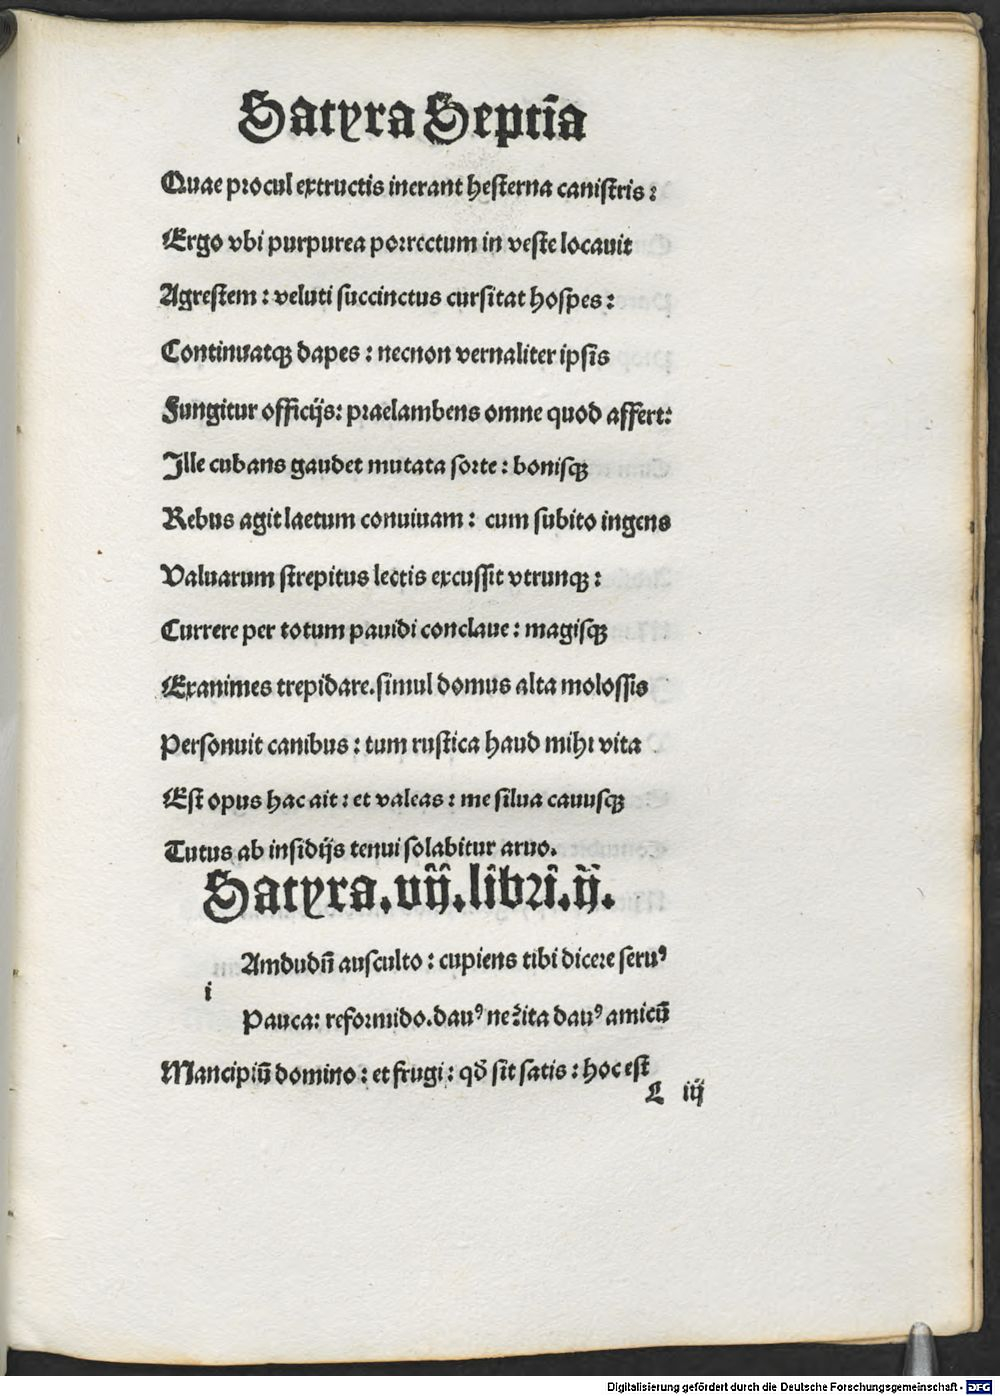 Satyra Septīa
Quae procul extructis inerant hesterna canistris:
Ergo vbi purpurea porrectum in veste locauit
Agrestem: veluti succinctus cursitat hospes:
Continuatqȝ dapes: necnon vernaliter ipsis
Fungitur officijs: praelambens omne quod affert:
Ille cubans gaudet mutata sorte: bonisqȝ
Rebus agit laetum conuiuam: cum subito ingens
Valuarum strepitus lectis excussit vtrunqȝ:
Currere per totum pauidi conclaue: magisqȝ
Exanimes trepidare. simul domus alta molossis
Personuit canibus: tum rustica haud mihi vita
Est opus hac ait: et valeas: me silua cauusqȝ
Tutus ab insidijs tenui solabitur aruo.
Satyra. vij. libri. ij.
Amdudū ausculto: cupiens tibi dicere seruꝰ
i
Pauca: reformido. dauꝰ ne ita dauꝰ amicū
Mancipiū domino: et frugi: qđ sit satis: hoc est
L iij
Digitalisierung gefördert durch die Deutsche Forschungsgemeinschaft - DFG